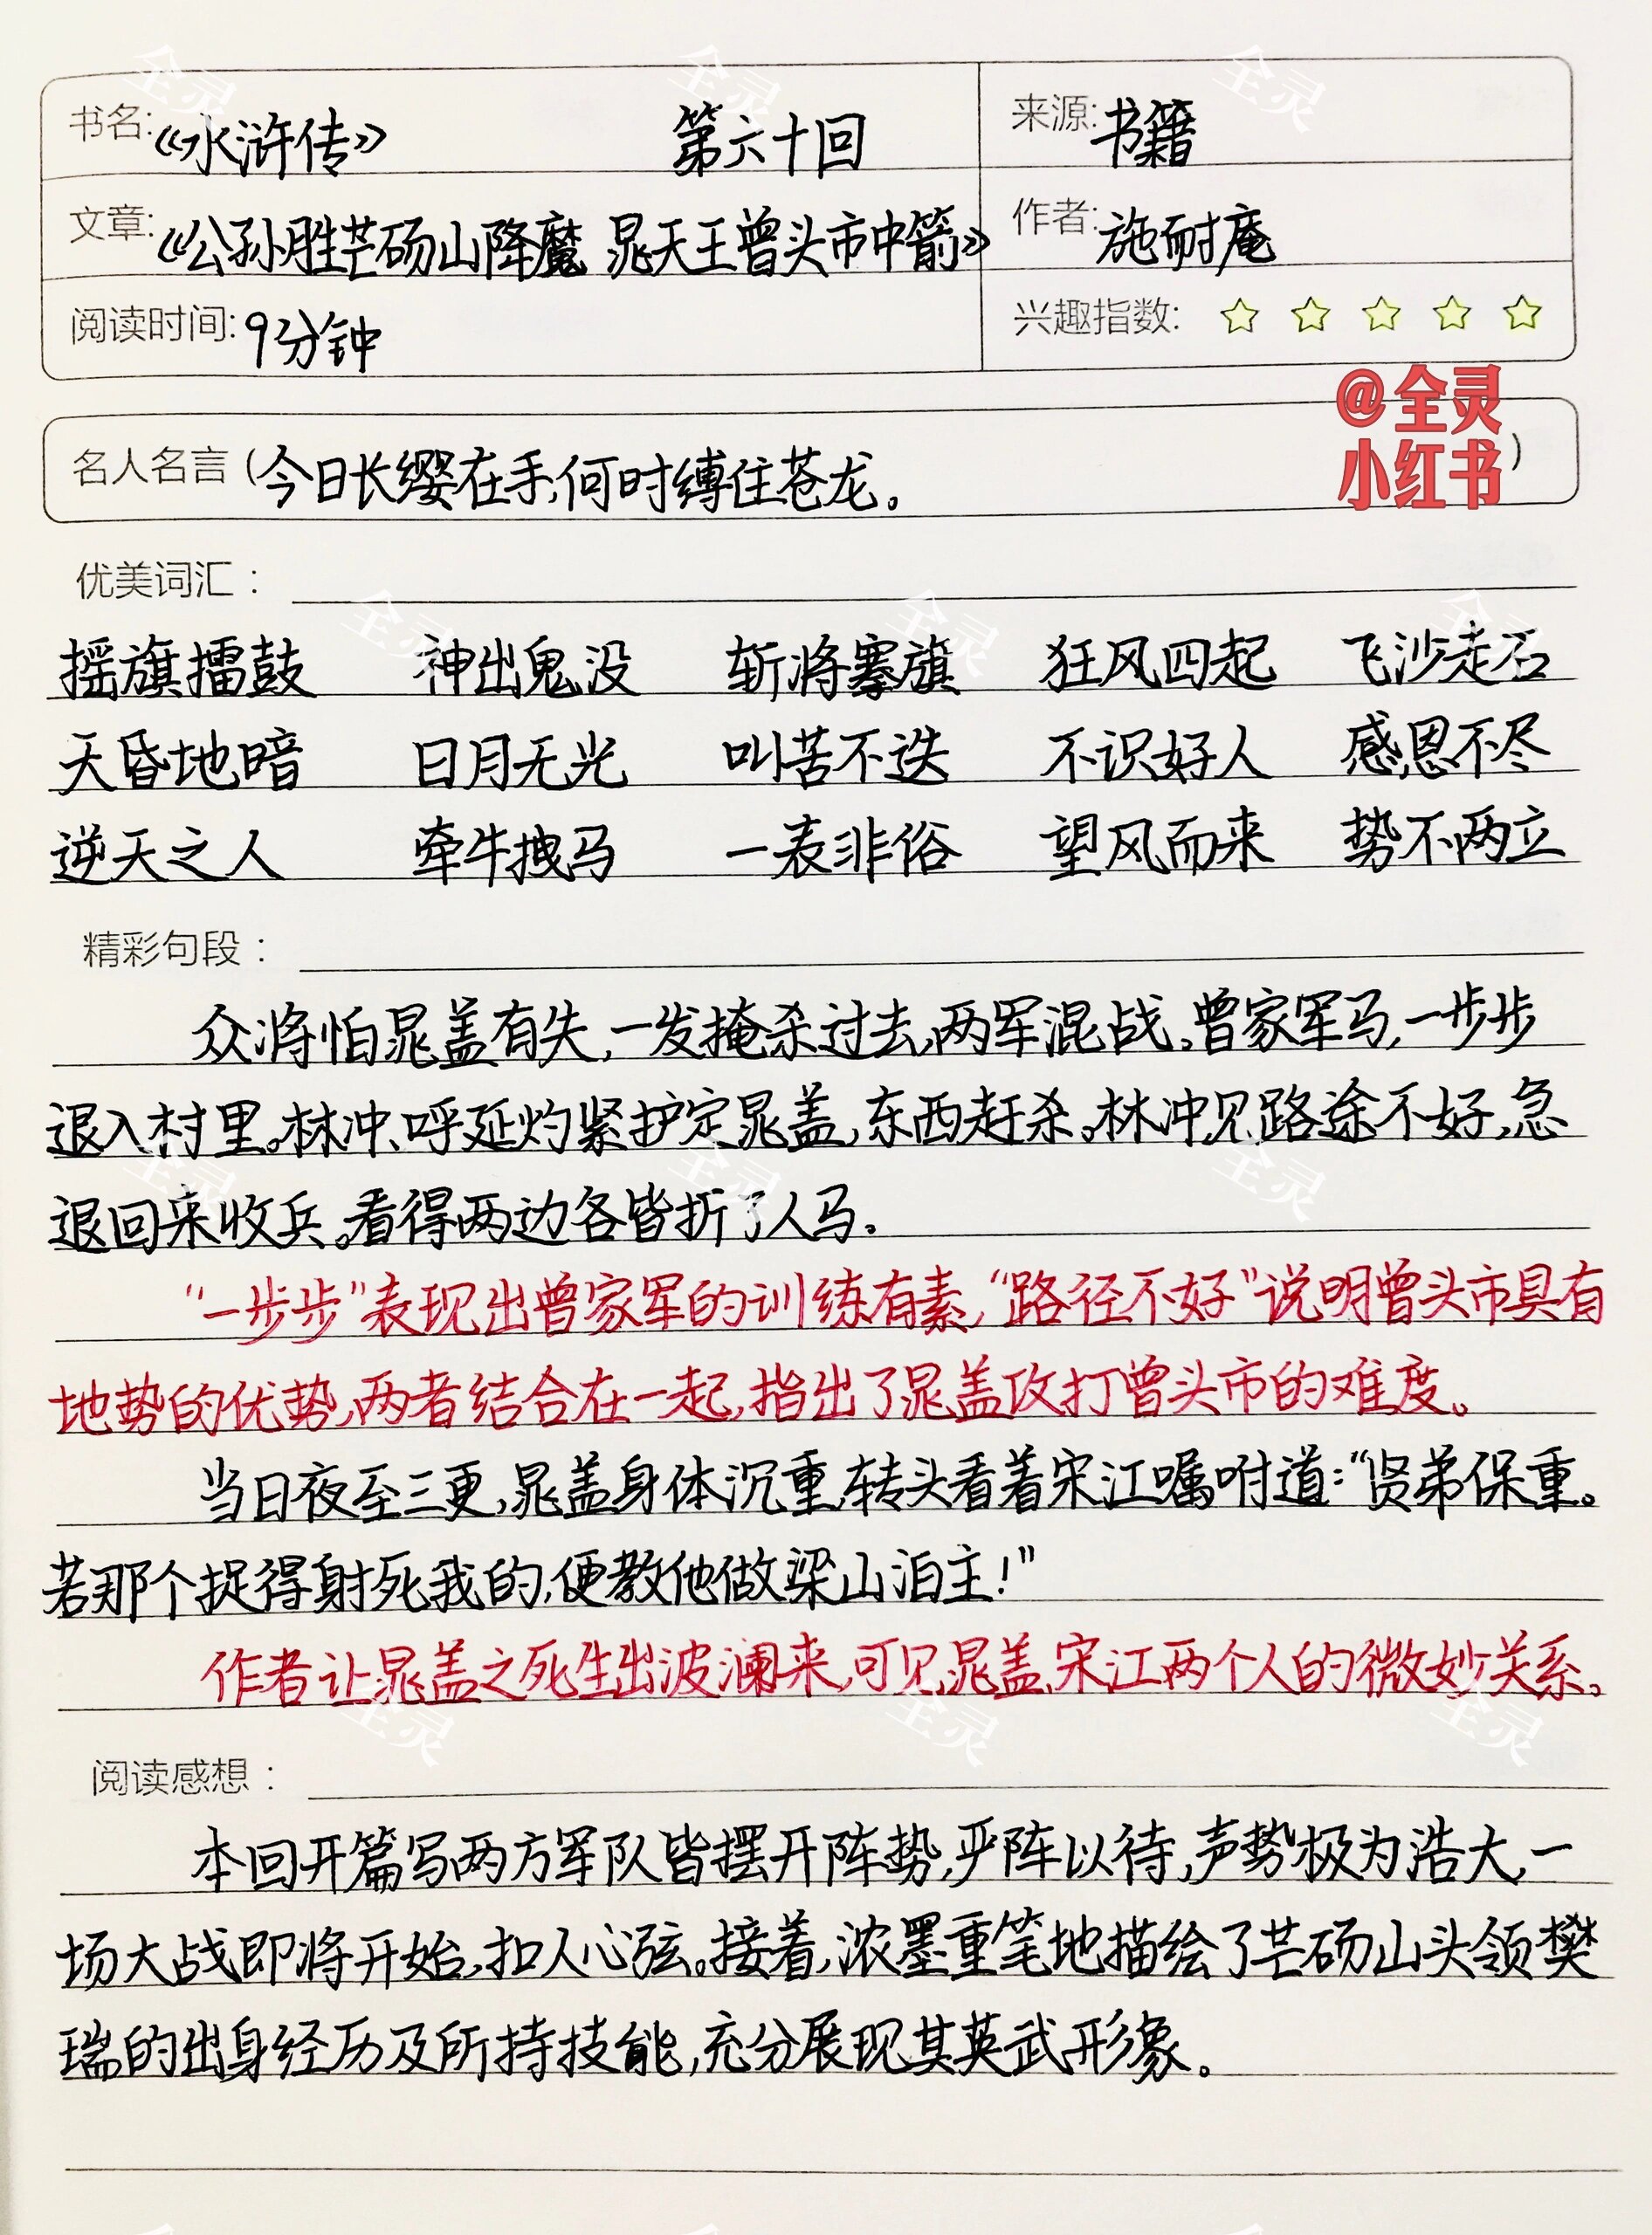 书名:《水浒传》 第六十回 来源:书籍
文章:《公孙胜芒砀山降魔 晁天王曾头市中箭》 作者:施耐庵
阅读时间:9分钟 兴趣指数:☆☆☆☆☆
@全灵
小红书
名人名言(今日长缨在手,何时缚住苍龙。)
优美词汇:
摇旗擂鼓 神出鬼没 斩将搴旗 狂风四起 飞沙走石
天昏地暗 日月无光 叫苦不迭 不识好人 感恩不尽
逆天之人 牵牛拽马 一表非俗 望风而来 势不两立
精彩句段:
众将怕晁盖有失,一发掩杀过去,两军混战。曾家军马,一步步
退入村里。林冲、呼延灼紧护定晁盖,东西赶杀。林冲见路途不好,急
退回来收兵。看得两边各皆折了人马。
“一步步”表现出曾家军的训练有素,“路径不好”说明曾头市具有
地势的优势,两者结合在一起,指出了晁盖攻打曾头市的难度。
当日夜至三更,晁盖身体沉重,转头看着宋江嘱咐道:“贤弟保重。
若那个捉得射死我的,便教他做梁山泊主!”
作者让晁盖之死生出波澜来,可见晁盖、宋江两个人的微妙关系。
阅读感想:
本回开篇写两方军队皆摆开阵势,严阵以待,声势极为浩大,一
场大战即将开始,扣人心弦。接着,浓墨重笔地描绘了芒砀山头领樊
瑞的出身经历及所持技能,充分展现其英武形象。
全灵